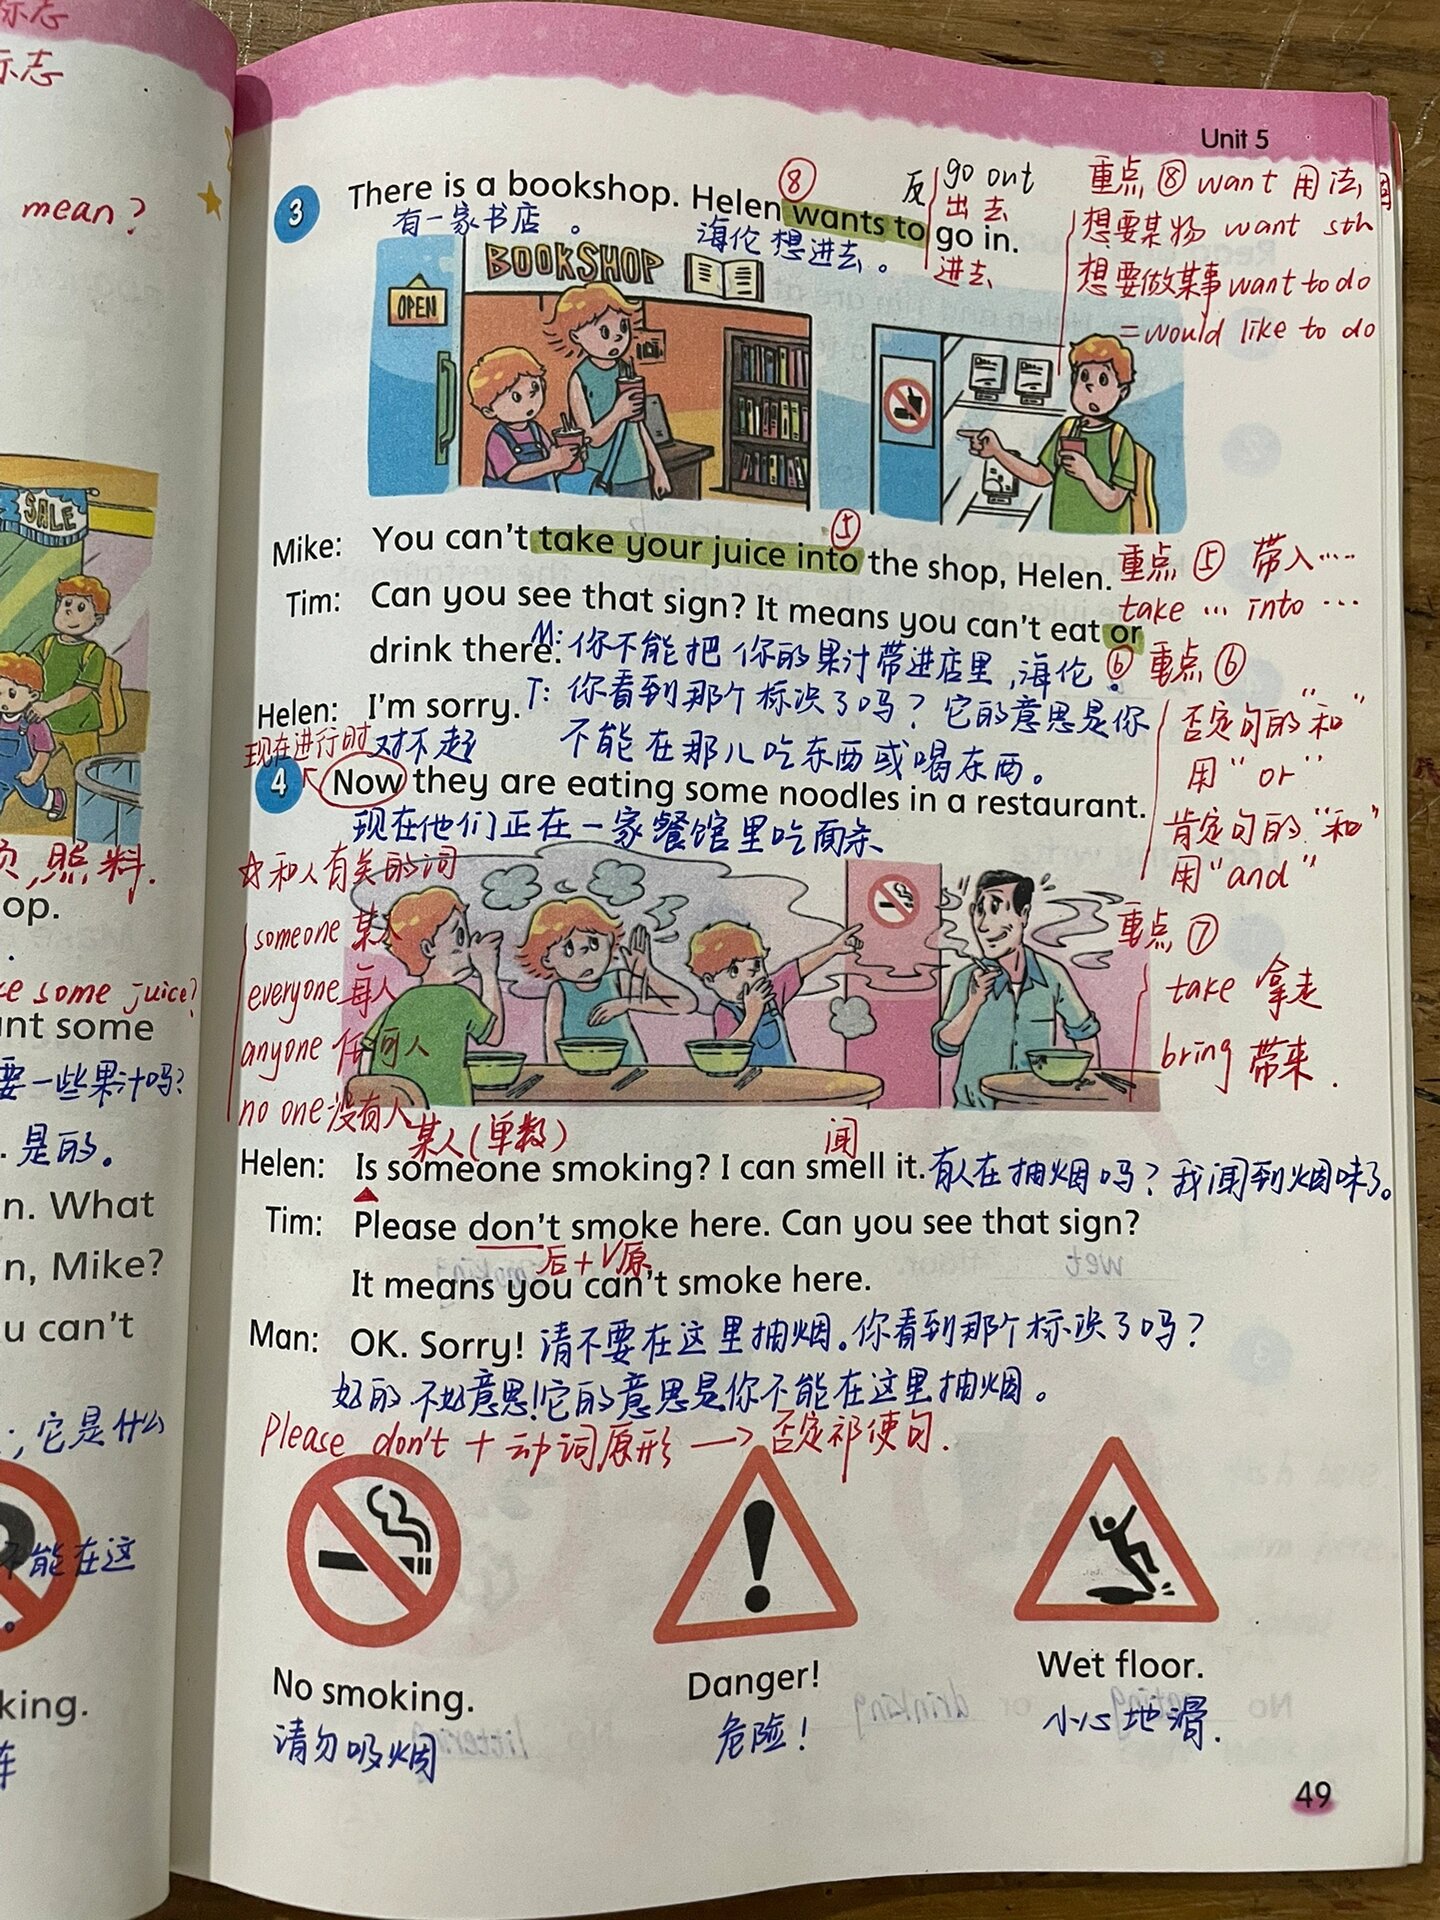 标志
标志
mean?
SALE
照料.
op.
some juice?
nt some
要一些果汁吗?
是的。
n. What
n, Mike?
u can't
它是什么
不能在这
king.
Unit 5
3 There is a bookshop. Helen wants to go in.
⑧
有一家书店 。 海伦想进去。
反 go out
出去
进去
重点⑧ want 用法
想要某物 want sth
想要做某事 want to do
= would like to do
BOOKSHOP
OPEN
Mike: You can't take your juice into the shop, Helen.
⑤
重点⑤ 带入……
take … into …
Tim: Can you see that sign? It means you can't eat or
drink there.
M: 你不能把你的果汁带进店里,海伦。
⑥ 重点⑥
T: 你看到那个标识了吗?它的意思是你
不能在那儿吃东西或喝东西。
Helen: I'm sorry.
对不起
否定句的“和”
用“or”
肯定句的“和”
用“and”
现在进行时
4 Now they are eating some noodles in a restaurant.
现在他们正在一家餐馆里吃面条
☆和人有关的词
someone 某人
everyone 每人
anyone 任何人
no one 没有人
重点⑦
take 拿走
bring 带来.
某人(单数)
闻
Helen: Is someone smoking? I can smell it.
有人在抽烟吗?我闻到烟味了。
Tim: Please don't smoke here. Can you see that sign?
后+V原
It means you can't smoke here.
Man: OK. Sorry!
请不要在这里抽烟。你看到那个标识了吗?
好的 不好意思!它的意思是你不能在这里抽烟。
Please don't + 动词原形 → 否定祈使句.
No smoking.
请勿吸烟
Danger!
危险!
Wet floor.
小心地滑.
49